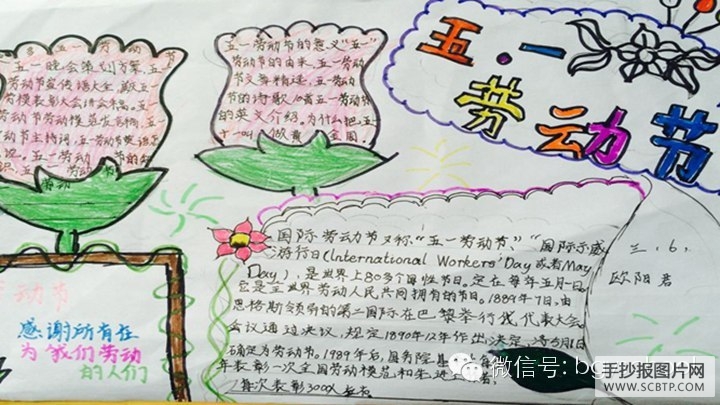 五.一
劳动节
三.6.
欧阳君
五一劳动节
五一晚会策划方案.五
动节宣传语大全.献五
劳模表彰大会讲会本.五
劳动节劳模发言稿.五
动节主持词.五一劳动节英语怎
说.五一劳动节的知
五一劳动节的意义"五一"
劳动节的由来.五一劳动
节文章精选.五一劳动
节的诗歌.10篇五一劳动节
的英文介绍.为什么把五
国际劳动节又称"五一劳动节""国际示威
游行日(International Workers' Day或者May
Day),是世界上80多个国性节日.定在每年五月一日.
它是全世界劳动人民共同拥有的节日.1889年7日,由
恩格斯领导的第二国际在巴黎举行代表大会.
会议通过决议,规定1890年
确定为劳动节.1989年后,国务院基
年表彰一次全国劳动模范和先进工作者,
每次表彰3000人左右.
动节
感谢所有在
为我们劳动
的人们
微信号: bg
手抄报图片网
WWW.SCBTP.COM